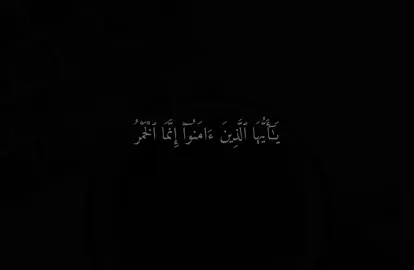 يَـٰٓأَيُّهَا ٱلَّذِينَ ءَامَنُوٓا۟ إِنَّمَا ٱلْخَمْرُ